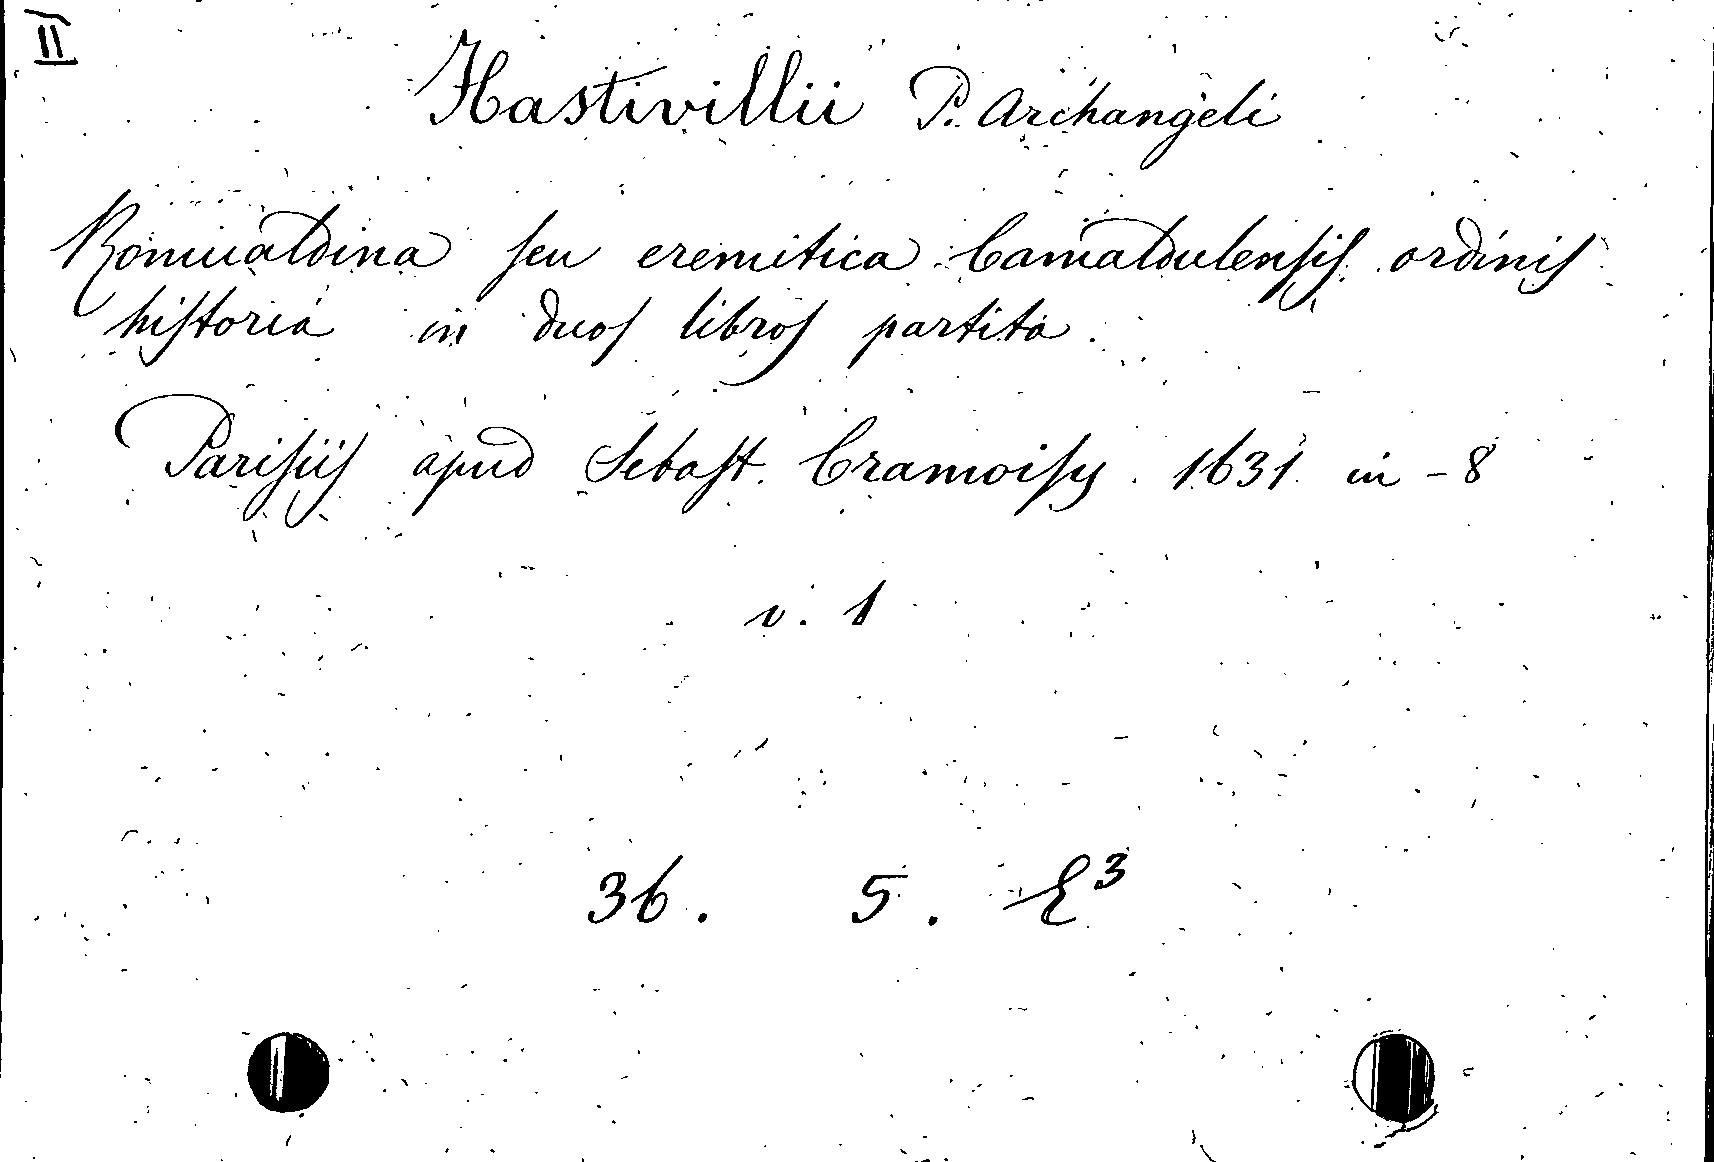 II
Hastivillii P. Archangeli
Romualdina seu eremitica Camaldulensis ordinis
historia in duos libros partita.
Parisiis apud Sebast. Cramoisy. 1631 in-8
v. 1
36. 5. E³